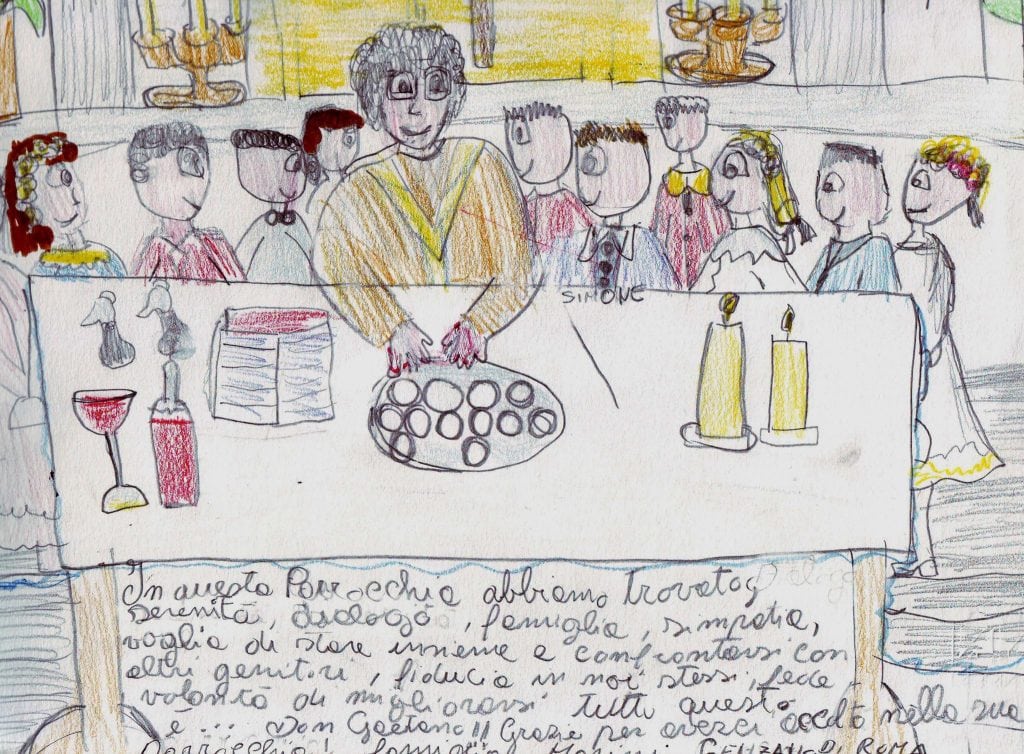 SIMONE
"In questa Parrocchia abbiamo trovato
serenità, dialogo, famiglia, simpatia,
voglia di stare insieme e confrontarsi con
altri genitori, fiducia in noi stessi, fede
volontà di migliorarsi tutto questo
è... Don Gaetano!! Grazie per averci accolto nella sua
Parrocchia! Famiglia GENZANO DI ROMA